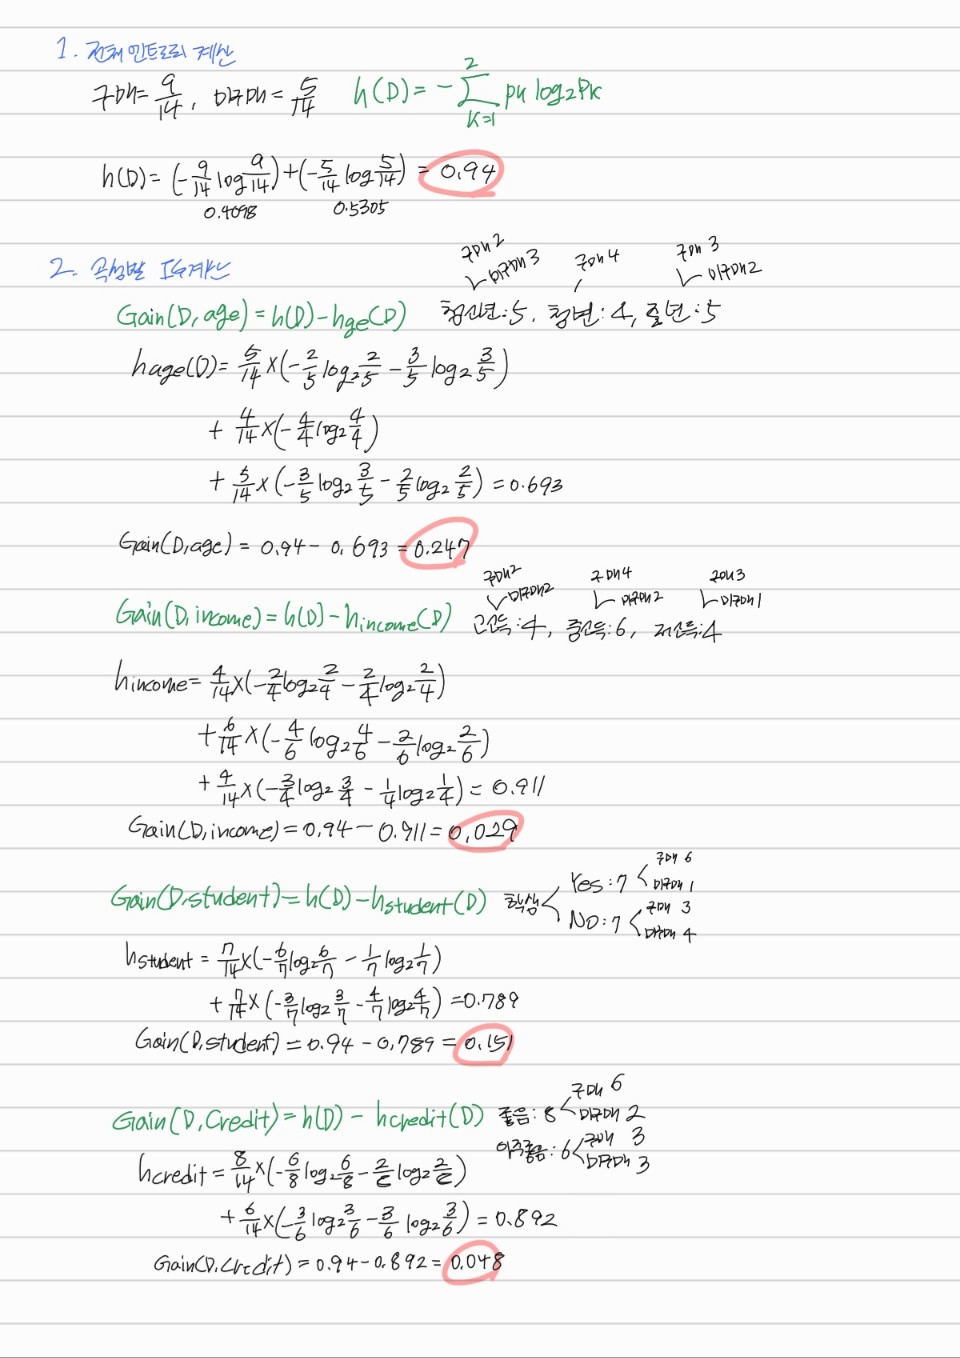 1. 전체 엔트로피 계산
구매 = 9/14, 미구매 = 5/14 h(D) = - Σ_{k=1}^{2} pk log2 Pk
h(D) = (-9/14 log 9/14) + (-5/14 log 5/14) = 0.94
0.4098 0.5305
2. 속성별 IG 계산
구매 2 미구매 3 구매 4 구매 3 미구매 2
Gain(D, age) = h(D) - hge(D) 청소년 : 5, 청년 : 4, 중년 : 5
hage(D) = 5/14 × (-2/5 log2 2/5 - 3/5 log2 3/5)
+ 4/14 × (-4/4 log2 4/4)
+ 5/14 × (-3/5 log2 3/5 - 2/5 log2 2/5) = 0.693
Gain(D, age) = 0.94 - 0.693 = 0.247
구매2 미구매2 구매4 미구매2 구매3 미구매1
Gain(D, income) = h(D) - hincome(D) 고소득 : 4, 중소득 : 6, 저소득 : 4
hincome = 4/14 × (-2/4 log2 2/4 - 2/4 log2 2/4)
+ 6/14 × (-4/6 log2 4/6 - 2/6 log2 2/6)
+ 4/14 × (-3/4 log2 3/4 - 1/4 log2 1/4) = 0.911
Gain(D, income) = 0.94 - 0.911 = 0.029
Gain(D, student) = h(D) - hstudent(D) 학생 Yes : 7 구매 6 미구매 1
No : 7 구매 3 미구매 4
hstudent = 7/14 × (-6/7 log2 6/7 - 1/7 log2 1/7)
+ 7/14 × (-3/7 log2 3/7 - 4/7 log2 4/7) = 0.789
Gain(D, student) = 0.94 - 0.789 = 0.151
Gain(D, Credit) = h(D) - hcredit(D) 좋음 : 8 구매 6 미구매 2
아주좋음 : 6 구매 3 미구매 3
hcredit = 8/14 × (-6/8 log2 6/8 - 2/ log2 2/)
+ 6/14 × (-3/6 log2 3/6 - 3/6 log2 3/6) = 0.892
Gain(D, Credit) = 0.94 - 0.892 = 0.048